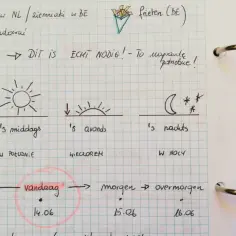 w NL / ziemniaki w BE frieten (BE)
→ DIT IS ECHT NODIG! - To naprawdę potrzebne!
's middags 's avonds 's nachts
W POŁUDNIE WIECZOREM W NOCY
vandaag → morgen → overmorgen
14.06 15.06 16.06